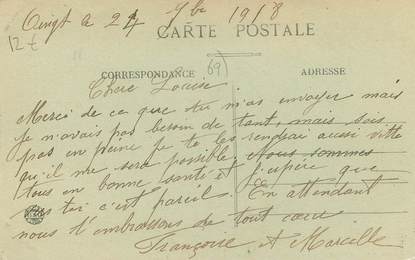 Oingt le 24 7bre 1918
12 €
CARTE POSTALE
CORRESPONDANCE
69
ADRESSE
Chere Louise
Merci de ce que tu m'as envoyer mais
je n'avais pas besoin de tant, mais sois
pas en peine je te les rendrai aussi vitte
qu'il me sera possible, Nous sommes
tous en bonne santé et j'espère que
toi c'est pareil En attendant
nous t'embrassons de tout cœur
Françoise et Marcelle